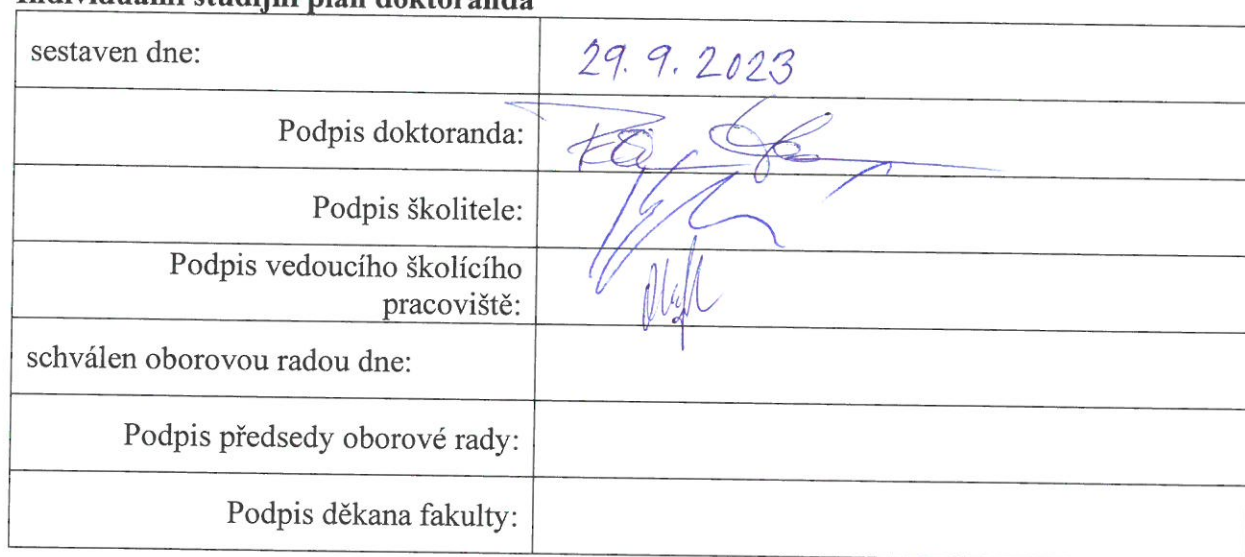 Individuální studijní plán doktoranda
sestaven dne:
29. 9. 2023
Podpis doktoranda:
Podpis školitele:
Podpis vedoucího školícího
pracoviště:
schválen oborovou radou dne:
Podpis předsedy oborové rady:
Podpis děkana fakulty: